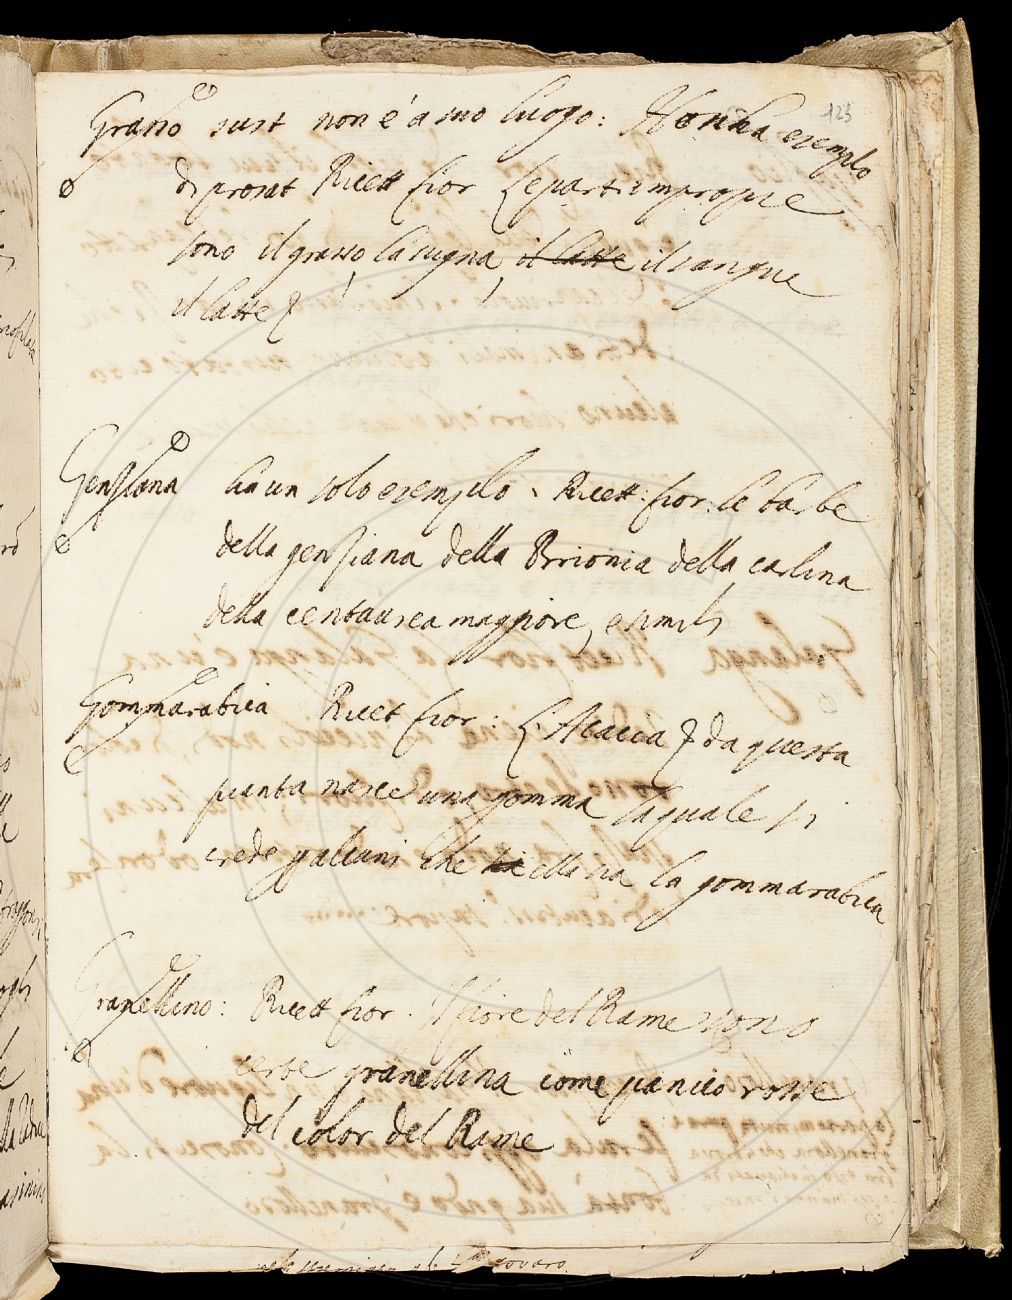 123
Grasso sust non è a suo luogo: Non ha esemplo
di prosat Ricett fior Le parti improprie
sono il grasso, la sugna, il latte il sangue
il latte
Genziana ha un solo esemplo. Ricett: fior: le barbe
della genziana della Brionia della carlina
della centaurea maggiore, e simili
Gommarabica Ricet fior: L'Acacia da questa
pianta nasce una gomma la quale si
crede gli alcuni che ella sia la gommarabica
Granellino: Ricett fior. Il fiore del Rame sono
certe granellina come panico rosse
del color del Rame